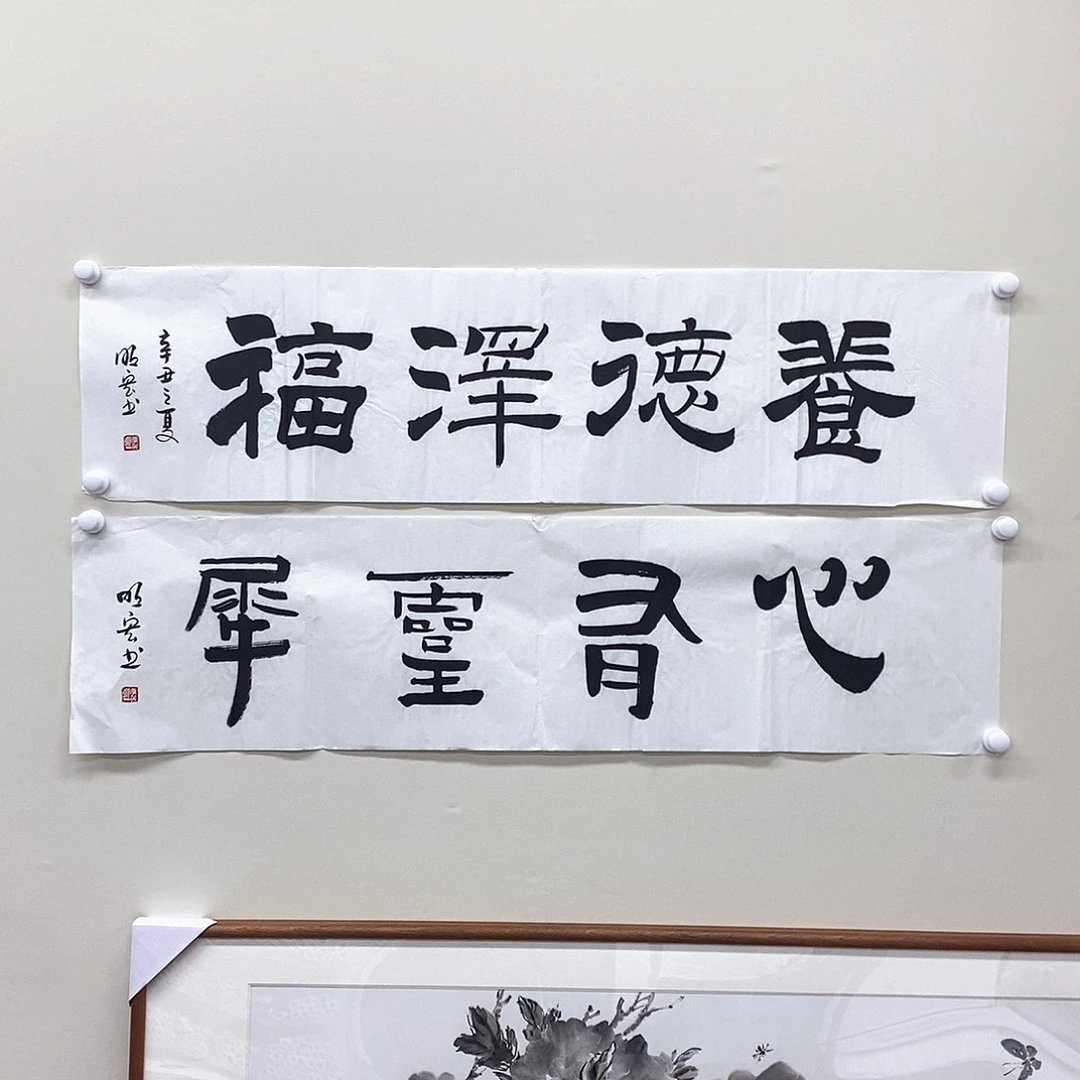 養德澤福
辛丑之夏
明宏书
心有靈犀
明宏书